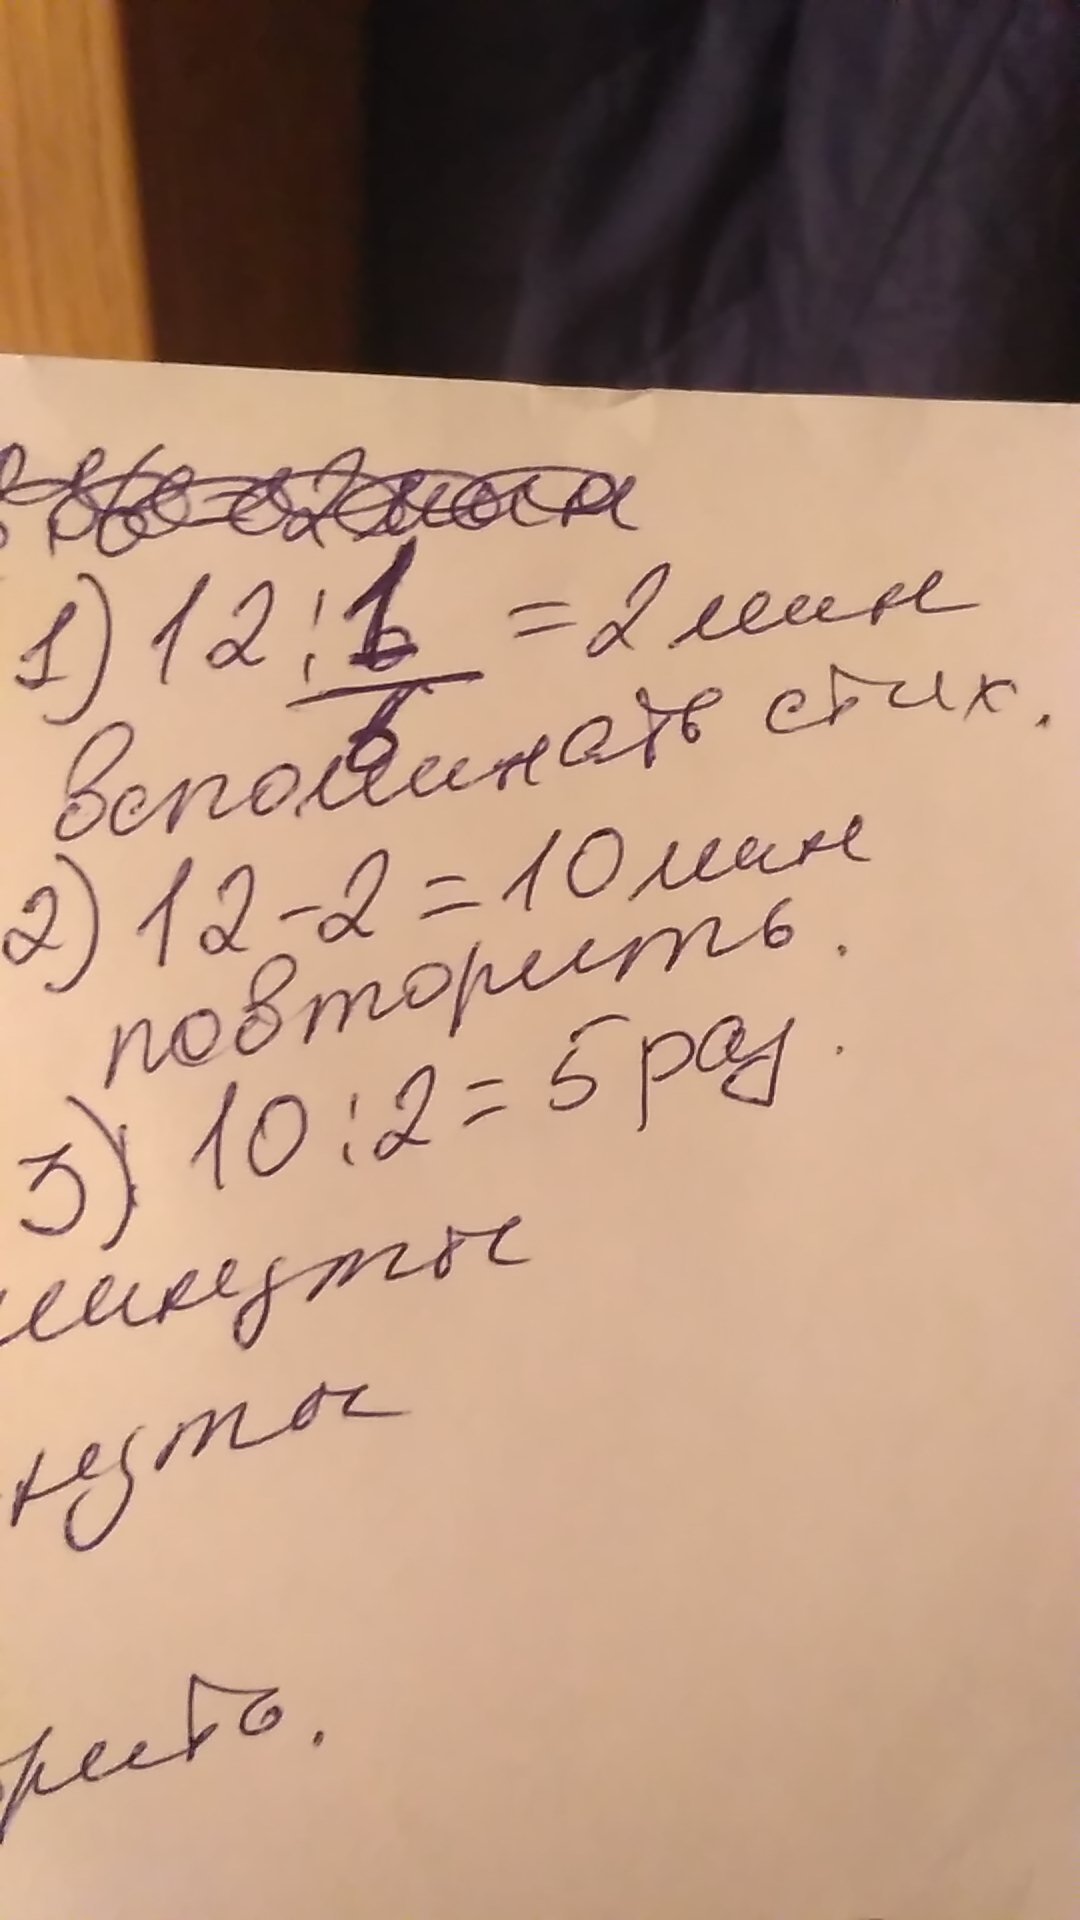 1) 12 : 1/6 = 2 мин
вспоминать стих.
2) 12 - 2 = 10 мин
повторить.
3) 10 : 2 = 5 раз.
минуты
нуты
рить.